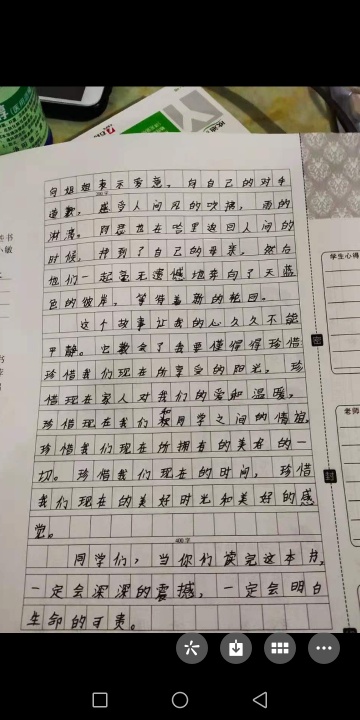 向姐姐表示爱意,向自己的对手
道歉,感受人间风的吹拂,雨的
淋漓。阿显也在哈里返回人间的
时候,找到了自己的母亲,然后
他们一起毫无遗憾地奔向了天蓝
色的彼岸,等待着新的轮回。
这个故事让我的心久久不能
平静。它教会了我要懂得得珍惜
珍惜我们现在所享受的阳光,珍
惜现在家人对我们的爱和温暖,
珍惜现在我们和同学之间的情谊,
珍惜我们现在所拥有的美好的一
切。珍惜我们现在的时间,珍惜
我们现在的美好时光和美好的感
觉。
400字
同学们,当你们读完这本书,
一定会深深的震撼,一定会明白
生命的可贵。
学生心得
老师
密
封